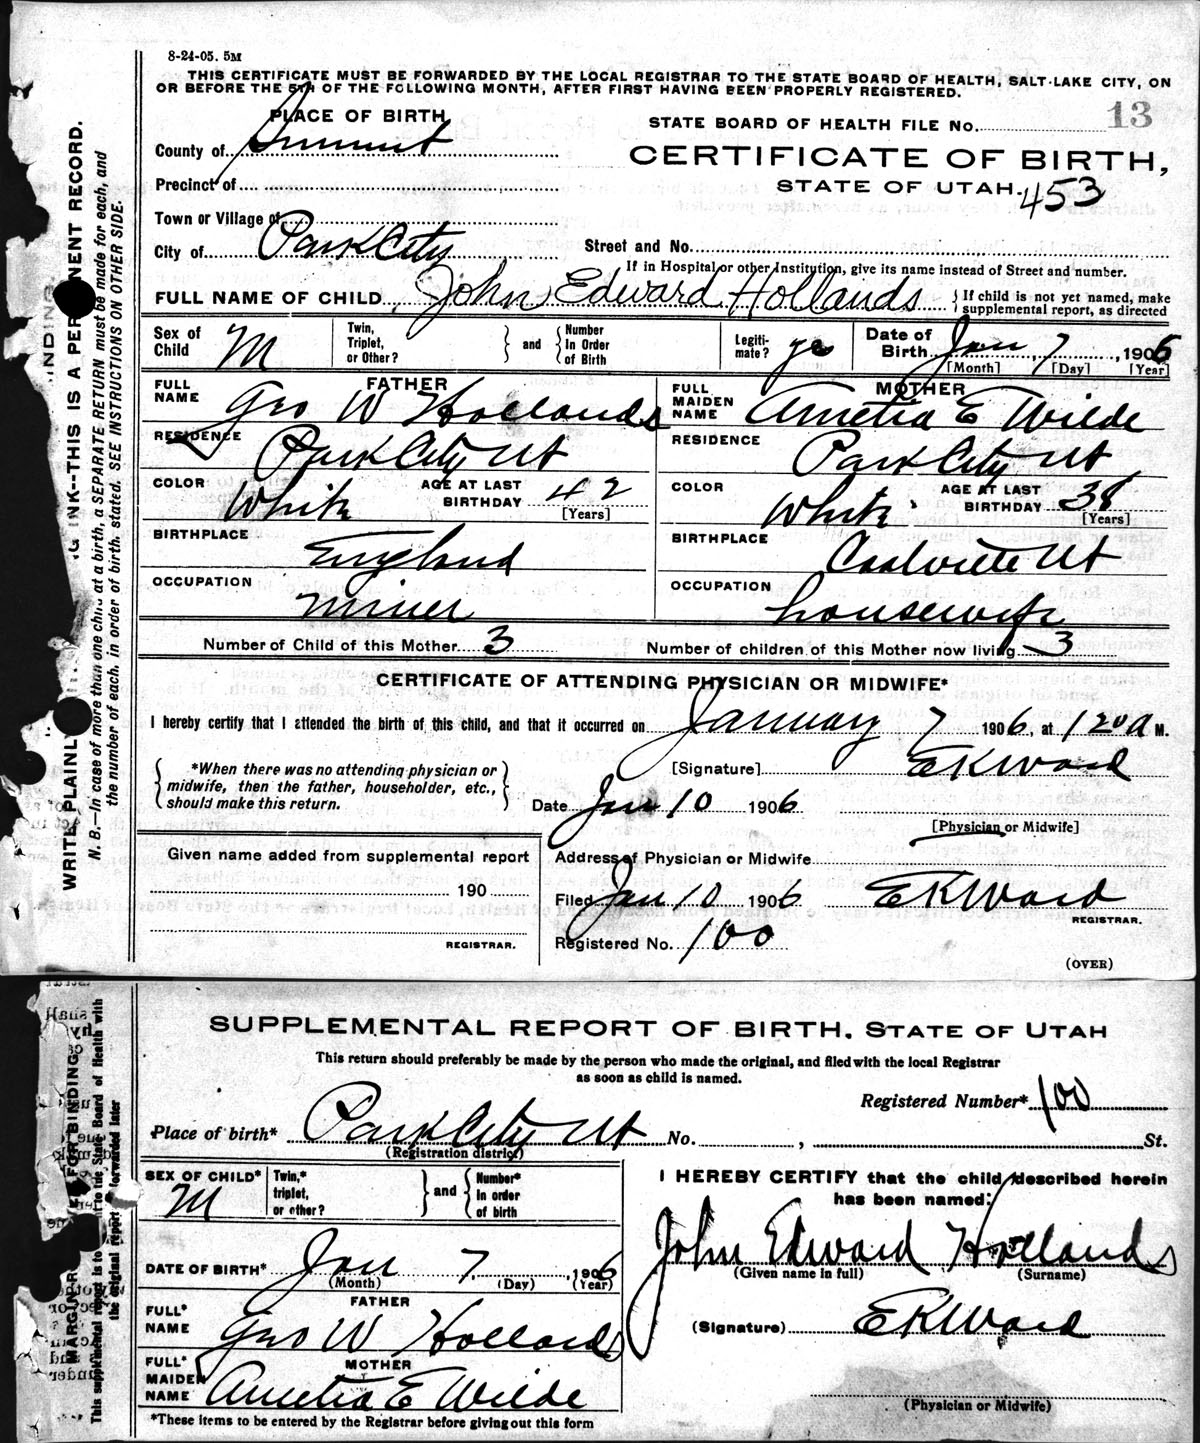 8-24-05. 5M
THIS CERTIFICATE MUST BE FORWARDED BY THE LOCAL REGISTRAR TO THE STATE BOARD OF HEALTH, SALT LAKE CITY, ON
OR BEFORE THE 5TH OF THE FOLLOWING MONTH, AFTER FIRST HAVING BEEN PROPERLY REGISTERED.
PLACE OF BIRTH
STATE BOARD OF HEALTH FILE No. 13
County of Summit
CERTIFICATE OF BIRTH,
Precinct of
STATE OF UTAH. 453
Town or Village of
City of Park City
Street and No.
If in Hospital or other Institution, give its name instead of Street and number.
FULL NAME OF CHILD John Edward Hollands { If child is not yet named, make supplemental report, as directed
Sex of Child M
Twin, Triplet, or Other? } and { Number In Order of Birth
Legiti-mate? yes
Date of Birth Jan 7, 1906
[Month] [Day] [Year]
FATHER
FULL NAME Geo W Hollands
RESIDENCE Park City Ut
COLOR White AGE AT LAST BIRTHDAY 42
[Years]
BIRTHPLACE England
OCCUPATION Miner
MOTHER
FULL MAIDEN NAME Amelia E Wilde
RESIDENCE Park City Ut
COLOR White AGE AT LAST BIRTHDAY 38
[Years]
BIRTHPLACE Coalville Ut
OCCUPATION housewife
Number of Child of this Mother 3 Number of children of this Mother now living 3
CERTIFICATE OF ATTENDING PHYSICIAN OR MIDWIFE*
I hereby certify that I attended the birth of this child, and that it occurred on January 7 1906, at 120 a M.
{ *When there was no attending physician or
midwife, then the father, householder, etc.,
should make this return. }
[Signature] EKWard
Date Jan 10 1906
[Physician or Midwife]
Given name added from supplemental report
190
REGISTRAR.
Address of Physician or Midwife
Filed Jan 10 1906 EKWard
REGISTRAR.
Registered No. 100
(OVER)
WRITE PLAINL
G INK--THIS IS A PERMANENT RECORD.
N. B.—In case of more than one child at a birth, a SEPARATE RETURN must be made for each, and
the number of each, in order of birth, stated. SEE INSTRUCTIONS ON OTHER SIDE.
SUPPLEMENTAL REPORT OF BIRTH, STATE OF UTAH
This return should preferably be made by the person who made the original, and filed with the local Registrar
as soon as child is named.
Registered Number* 100
Place of birth* Park City Ut No. , St.
(Registration district)
SEX OF CHILD* M
Twin,* triplet, or other? } and { Number* In order of birth
DATE OF BIRTH* Jan 7, 1906
(Month) (Day) (Year)
FATHER
FULL* NAME Geo W Hollands
MOTHER
FULL* MAIDEN NAME Amelia E Wilde
*These items to be entered by the Registrar before giving out this form
I HEREBY CERTIFY that the child described herein
has been named:
John Edward Hollands
(Given name in full) (Surname)
(Signature) EKWard
(Physician or Midwife)
FOR BINDING
the original report forwarded later